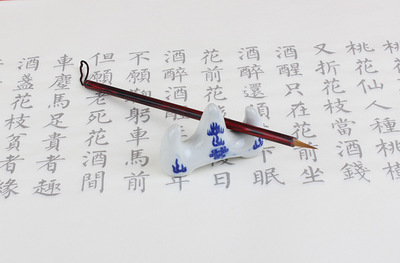 桃花
桃花仙人種桃
又折花枝當酒錢
酒醒只在前坐
酒醉還下眠
花前花日
酒醉酒年
不願躬車馬前
但願老死花酒間
車塵馬足貴者趣
酒盞花枝貧者緣